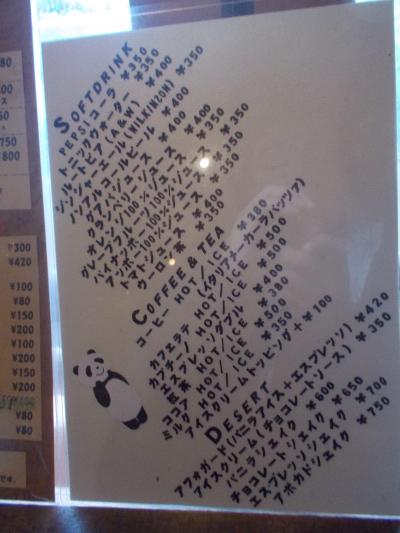 SOFTDRINK
PEPSIコーラ ¥350
トニックウォーター ¥350
ルートビア(A&W) ¥400
ジンジャーエール(WILKINSON) ¥350
ノンアルコールビール ¥400
グァバジュース ¥400
クランベリージュース ¥400
オレンジ100%ジュース ¥350
グレープフルーツ100%ジュース ¥350
パイナップル100%ジュース ¥350
マンゴージュース ¥400
トマトジュース ¥350
ウーロン茶
COFFEE & TEA
コーヒー HOT/ICE ¥380
カフェラテ HOT/ICE ¥500
カプチーノ HOT/ICE ¥500
エスプレッソダブル
紅茶 HOT/ICE
ココア HOT/ICE ¥500
ミルク HOT/ICE ¥350
アイスクリームトッピング+¥100
DESERT
アフォガード(バニラアイス+エスプレッソ) ¥420
アイスクリーム(チョコレートソース) ¥350
バニラシェイク ¥600
チョコレートシェイク ¥650
エスプレッソシェイク ¥700
アボカドシェイク ¥750
¥300
¥420
¥100
¥80
¥150
¥200
¥100
¥200
¥150
¥200
¥80
¥80